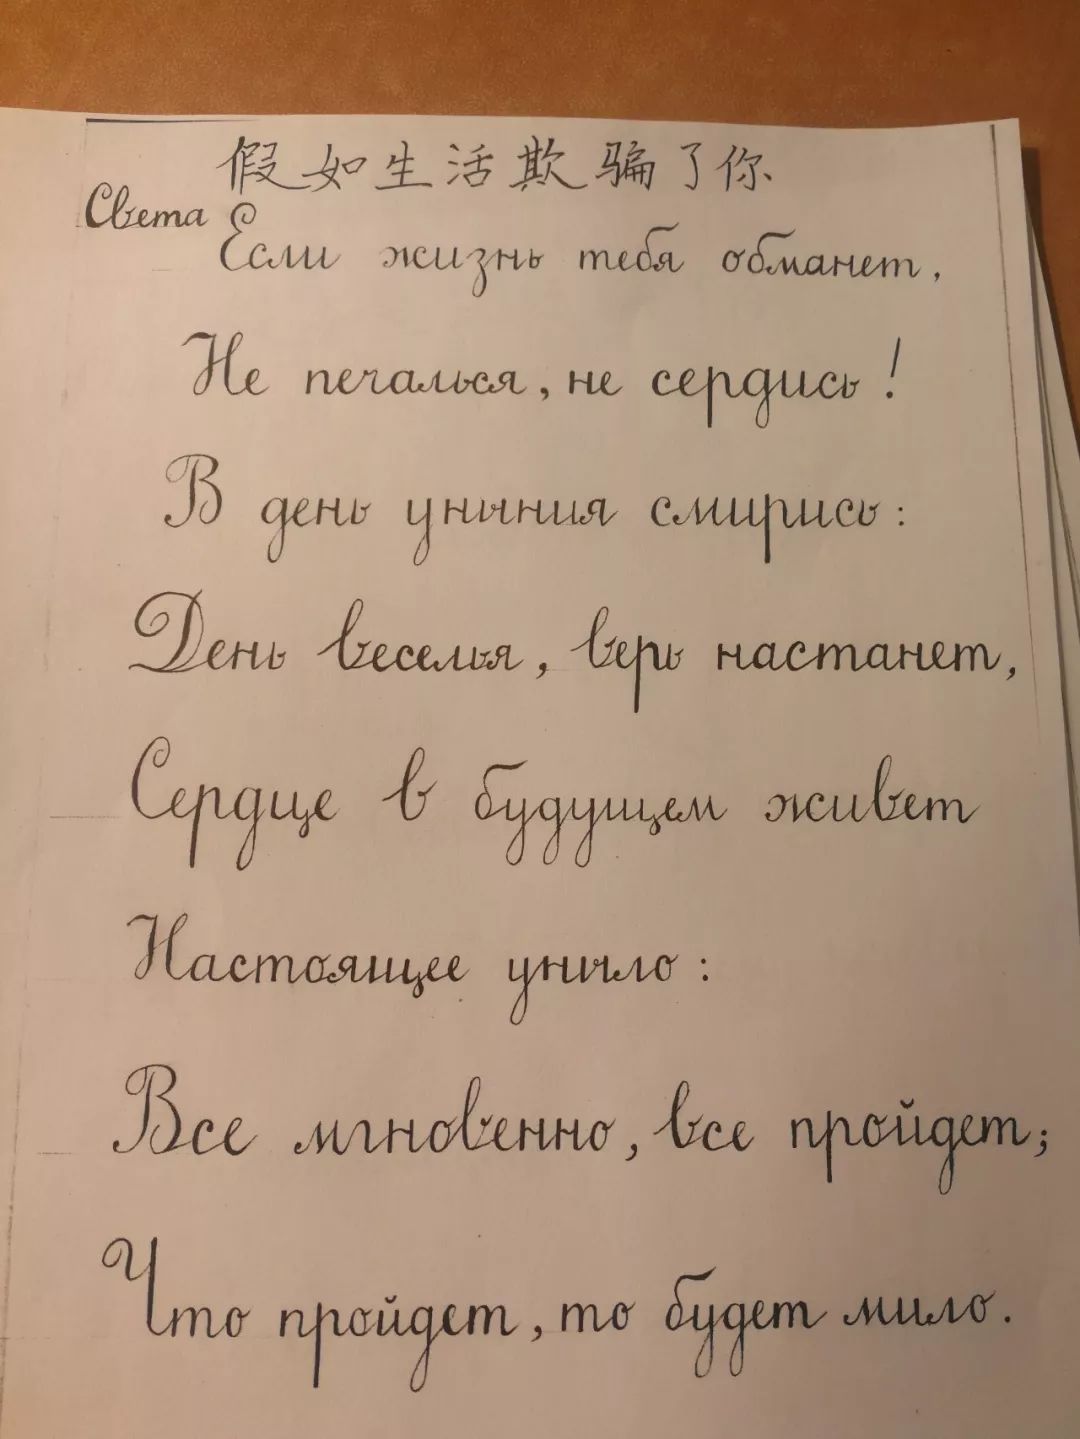 假如生活欺骗了你
Света
Если жизнь тебя обманет,
Не печалься, не сердись!
В день уныния смирись:
День веселья, верь настанет,
Сердце в будущем живет
Настоящее уныло:
Все мгновенно, все пройдет;
Что пройдет, то будет мило.